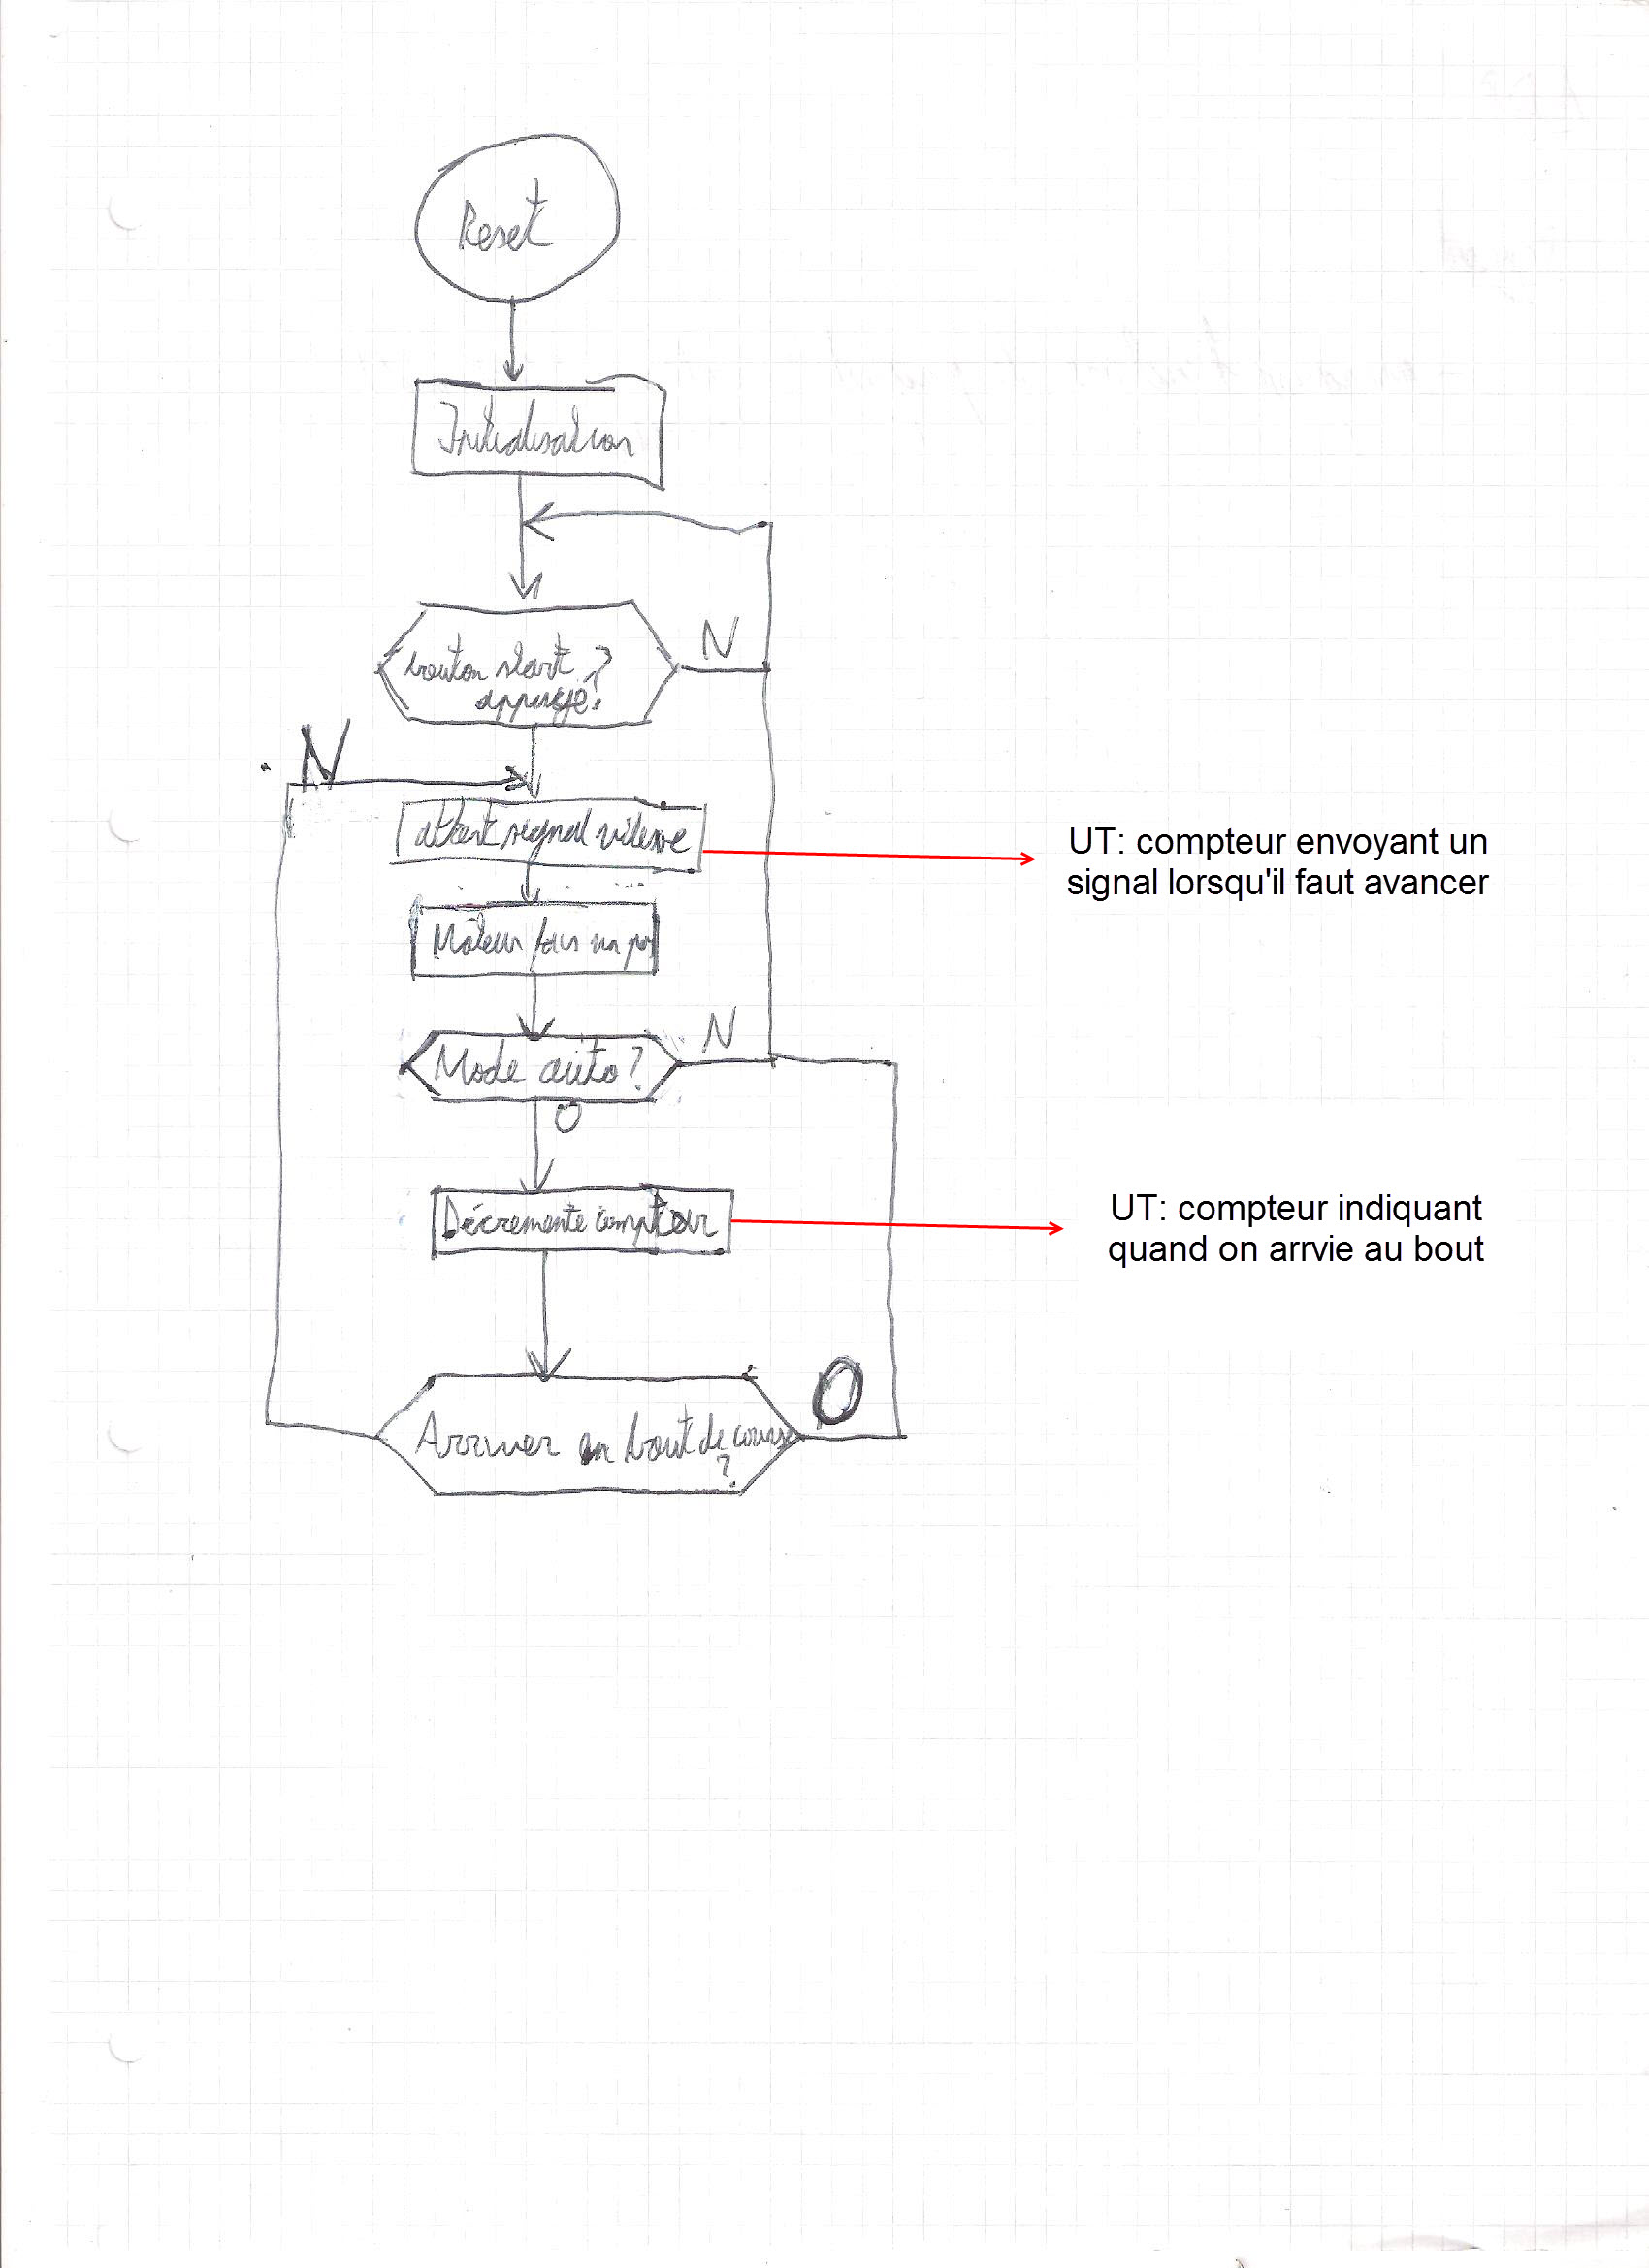 Reset
Initialisation
bouton start ?
appuyé?
N
N
attent signal vitesse
UT: compteur envoyant un
signal lorsqu'il faut avancer
Moteur fais un pas
N
Mode auto?
O
Décremente compteur
UT: compteur indiquant
quand on arrvie au bout
O
Arriver en bout de course
?